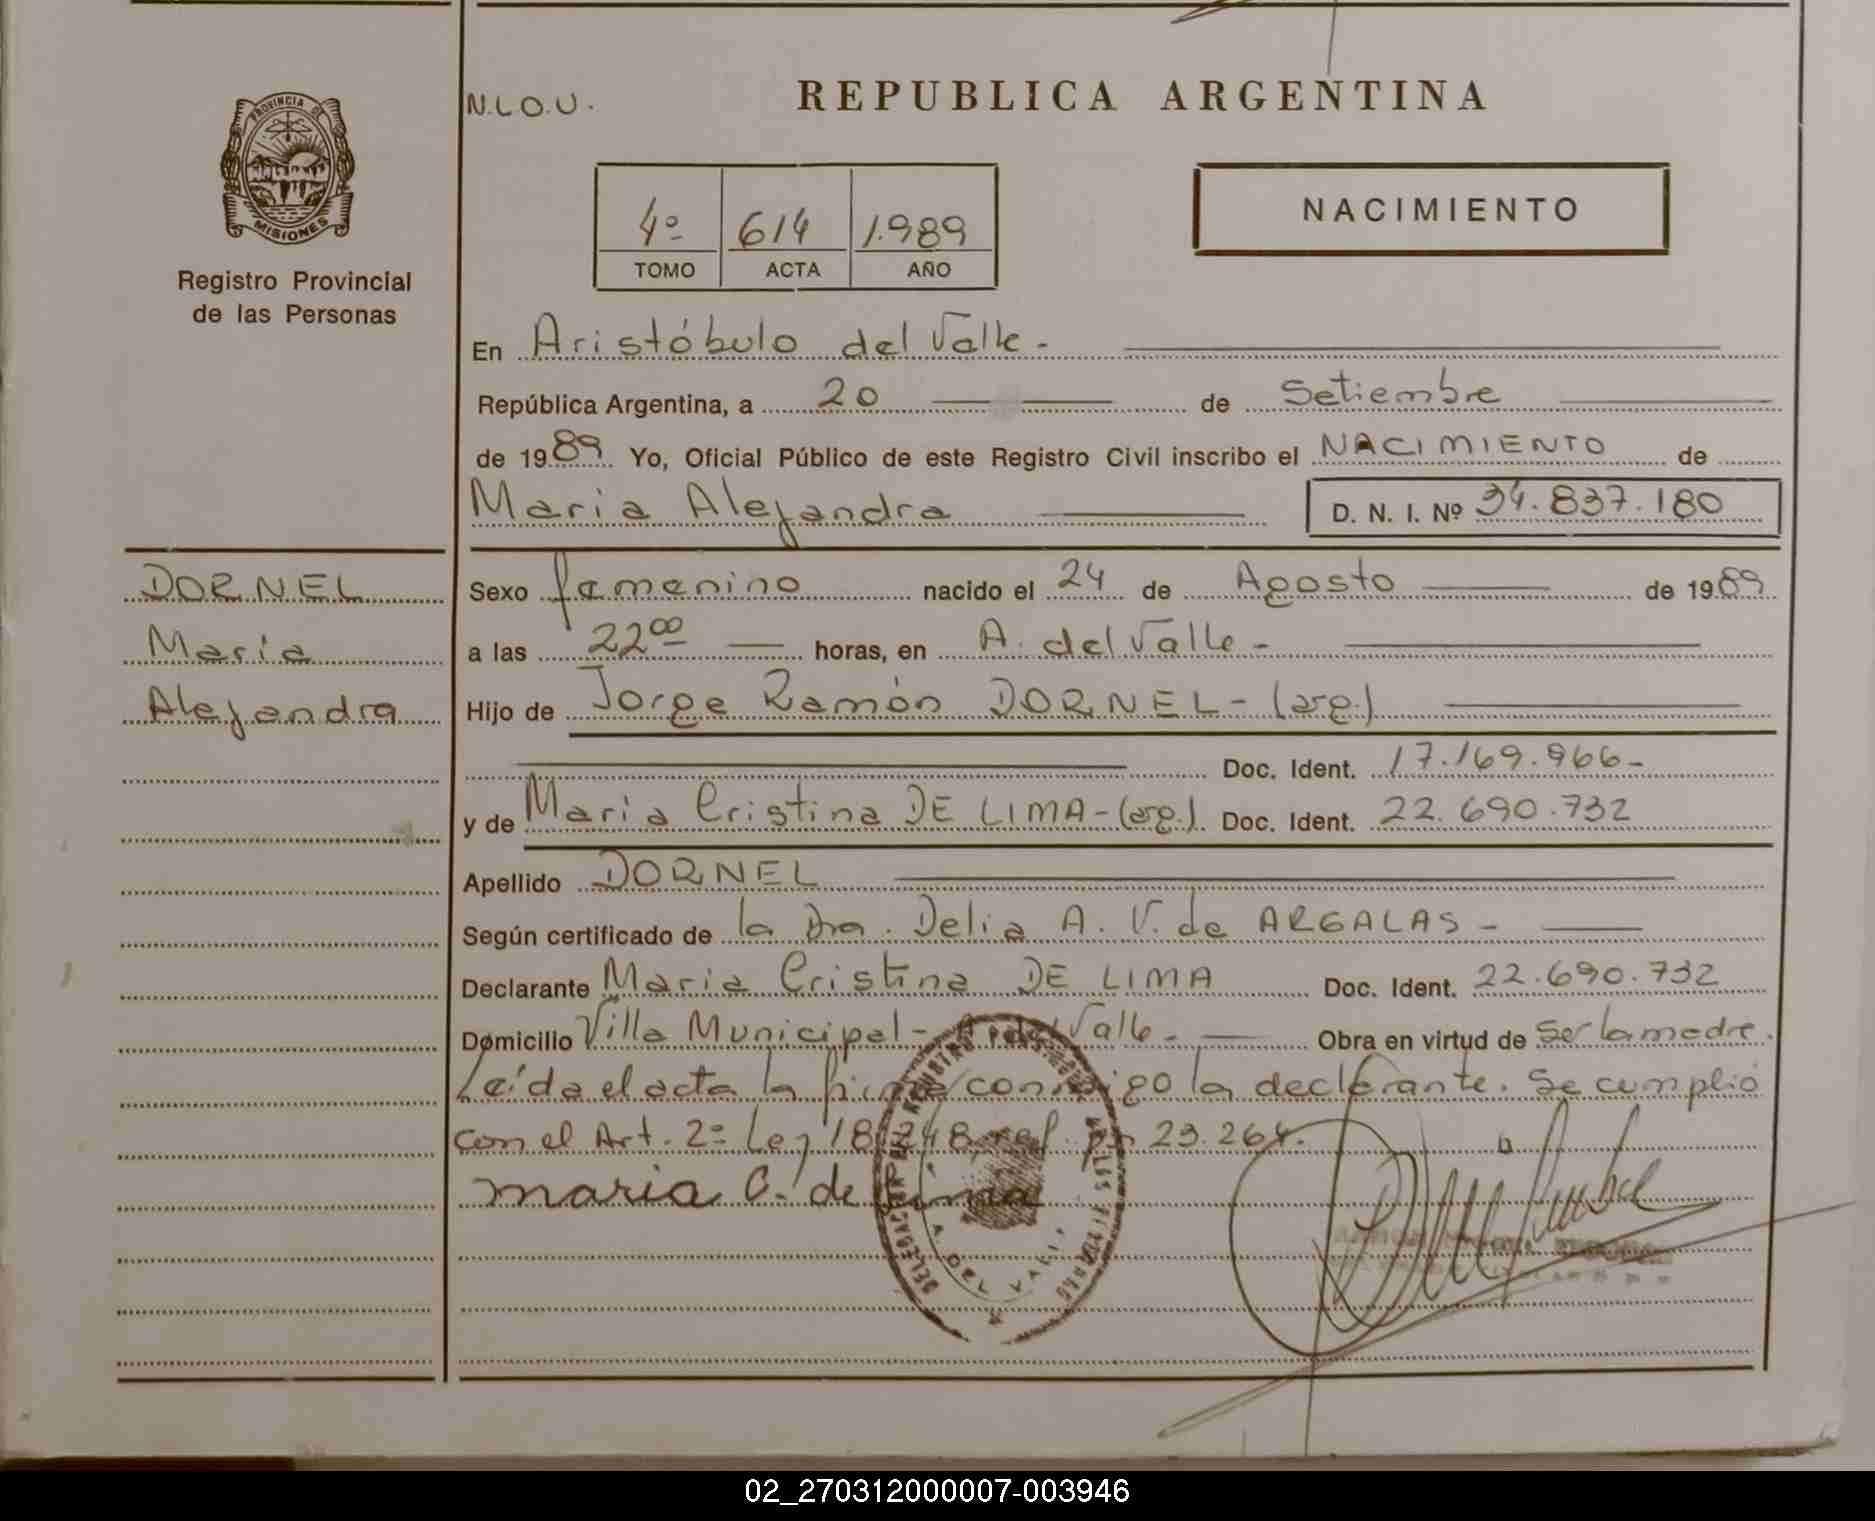 PROVINCIA DE
MISIONES
Registro Provincial
de las Personas
N.L.O.U.
REPUBLICA ARGENTINA
4º 614 1.989
TOMO ACTA AÑO
NACIMIENTO
En Aristóbulo del Valle.-
República Argentina, a 20 de Setiembre
de 1989. Yo, Oficial Público de este Registro Civil inscribo el NACIMIENTO de
Maria Alejandra D. N. I. Nº 34.837.180
DORNEL
María
Alejandra
Sexo famenino nacido el 24 de Agosto de 1989
a las 22⁰⁰ horas, en A. del Valle.-
Hijo de Jorge Ramón DORNEL- (arg.)
Doc. Ident. 17.169.966-
y de María Cristina DE LIMA-(arg.). Doc. Ident. 22.690.732
Apellido DORNEL
Según certificado de la Dra. Delia A. V. de ARGALAS -
Declarante Maria Cristina DE LIMA Doc. Ident. 22.690.732
Domicilio Villa Municipal- A. del Valle.- Obra en virtud de Ser la madre.
Leída el acta la firma conmigo la declarante. Se cumplió
con el Art. 2º Ley 18.248 ref. por 23.264.
maria C. de Lima
DELEGACION DEL REGISTRO
A. DEL VALLE
02_270312000007-003946